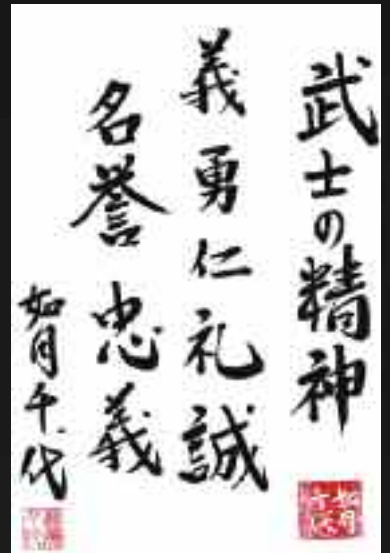 武士の精神
義勇仁礼誠
名誉忠義
如月千代
如月
千代